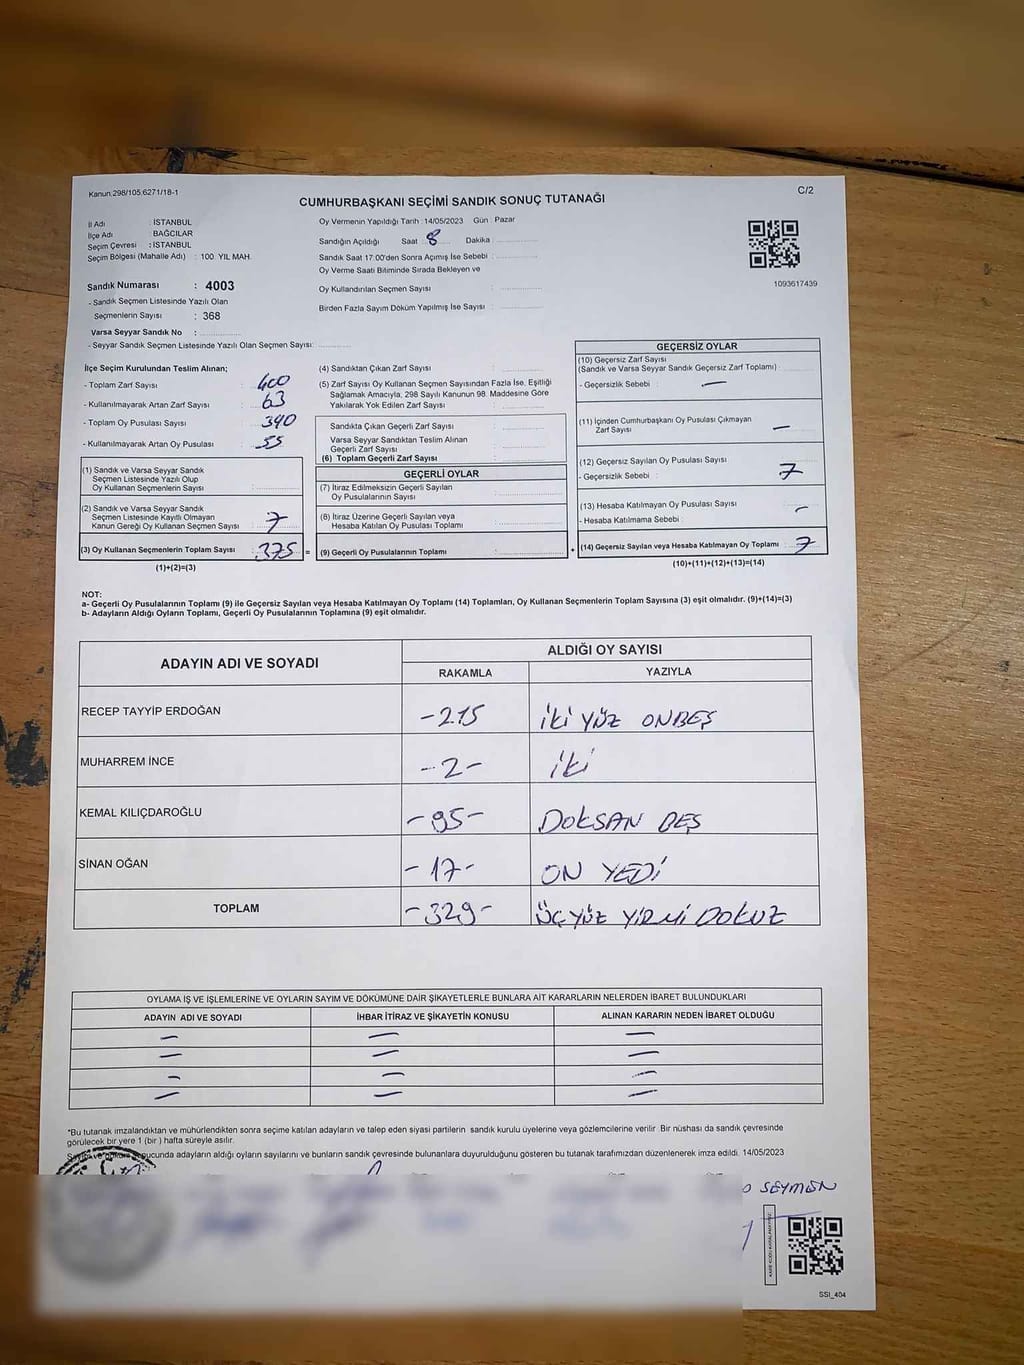 Kanun:298/105,6271/18-1
C/2
CUMHURBAŞKANI SEÇİMİ SANDIK SONUÇ TUTANAĞI
İl Adı : İSTANBUL
İlçe Adı : BAĞCILAR
Seçim Çevresi : İSTANBUL
Seçim Bölgesi (Mahalle Adı) : 100. YIL MAH.
Oy Vermenin Yapıldığı Tarih : 14/05/2023 Gün : Pazar
Sandığın Açıldığı Saat 8 Dakika :
Sandık Saat 17:00'den Sonra Açımış İse Sebebi :
Oy Verme Saati Bitiminde Sırada Bekleyen ve
Oy Kullandırılan Seçmen Sayısı :
Birden Fazla Sayım Döküm Yapılmış İse Sayısı :
1093617439
Sandık Numarası : 4003
- Sandık Seçmen Listesinde Yazılı Olan
Seçmenlerin Sayısı : 368
Varsa Seyyar Sandık No :
- Seyyar Sandık Seçmen Listesinde Yazılı Olan Seçmen Sayısı:
İlçe Seçim Kurulundan Teslim Alınan;
- Toplam Zarf Sayısı : 400
- Kullanılmayarak Artan Zarf Sayısı : 63
- Toplam Oy Pusulası Sayısı : 390
- Kullanılmayarak Artan Oy Pusulası : 55
(1) Sandık ve Varsa Seyyar Sandık
Seçmen Listesinde Yazılı Olup
Oy Kullanan Seçmenlerin Sayısı :
(2) Sandık ve Varsa Seyyar Sandık
Seçmen Listesinde Kayıtlı Olmayan
Kanun Gereği Oy Kullanan Seçmen Sayısı : 7
(3) Oy Kullanan Seçmenlerin Toplam Sayısı : 375 =
(1)+(2)=(3)
(4) Sandıktan Çıkan Zarf Sayısı :
(5) Zarf Sayısı Oy Kullanan Seçmen Sayısından Fazla İse, Eşitliği
Sağlamak Amacıyla, 298 Sayılı Kanunun 98. Maddesine Göre
Yakılarak Yok Edilen Zarf Sayısı :
Sandıkta Çıkan Geçerli Zarf Sayısı :
Varsa Seyyar Sandıktan Teslim Alınan
Geçerli Zarf Sayısı :
(6) Toplam Geçerli Zarf Sayısı :
GEÇERLİ OYLAR
(7) İtiraz Edilmeksizin Geçerli Sayılan
Oy Pusulalarının Sayısı :
(8) İtiraz Üzerine Geçerli Sayılan veya
Hesaba Katılan Oy Pusulası Toplamı :
(9) Geçerli Oy Pusulalarının Toplamı : +
GEÇERSİZ OYLAR
(10) Geçersiz Zarf Sayısı
(Sandık ve Varsa Seyyar Sandık Geçersiz Zarf Toplamı) :
- Geçersizlik Sebebi : —
(11) İçinden Cumhurbaşkanı Oy Pusulası Çıkmayan
Zarf Sayısı : —
(12) Geçersiz Sayılan Oy Pusulası Sayısı : 7
- Geçersizlik Sebebi :
(13) Hesaba Katılmayan Oy Pusulası Sayısı : -
- Hesaba Katılmama Sebebi :
(14) Geçersiz Sayılan veya Hesaba Katılmayan Oy Toplamı : 7
(10)+(11)+(12)+(13)=(14)
NOT:
a- Geçerli Oy Pusulalarının Toplamı (9) ile Geçersiz Sayılan veya Hesaba Katılmayan Oy Toplamı (14) Toplamları, Oy Kullanan Seçmenlerin Toplam Sayısına (3) eşit olmalıdır. (9)+(14)=(3)
b- Adayların Aldığı Oyların Toplamı, Geçerli Oy Pusulalarının Toplamına (9) eşit olmalıdır.
ADAYIN ADI VE SOYADI ALDIĞI OY SAYISI
RAKAMLA YAZIYLA
RECEP TAYYİP ERDOĞAN -215 İKİ YÜZ ONBEŞ
MUHARREM İNCE -2- İKİ
KEMAL KILIÇDAROĞLU -95- DOKSAN BEŞ
SİNAN OĞAN -17- ON YEDİ
TOPLAM -329- ÜÇYÜZ YİRMİ DOKUZ
OYLAMA İŞ VE İŞLEMLERİNE VE OYLARIN SAYIM VE DÖKÜMÜNE DAİR ŞİKAYETLERLE BUNLARA AİT KARARLARIN NELERDEN İBARET BULUNDUKLARI
ADAYIN ADI VE SOYADI İHBAR İTİRAZ VE ŞİKAYETİN KONUSU ALINAN KARARIN NEDEN İBARET OLDUĞU
— — —
— — —
— — —
— — —
*Bu tutanak imzalandıktan ve mühürlendikten sonra seçime katılan adayların ve talep eden siyasi partilerin sandık kurulu üyelerine veya gözlemcilerine verilir. Bir nüshası da sandık çevresinde
görülecek bir yere 1 (bir) hafta süreyle asılır.
ucunda adayların aldığı oyların sayılarını ve bunların sandık çevresinde bulunanlara duyurulduğunu gösteren bu tutanak tarafımızdan düzenlenerek imza edildi. 14/05/2023
SEYMEN
SSI_404